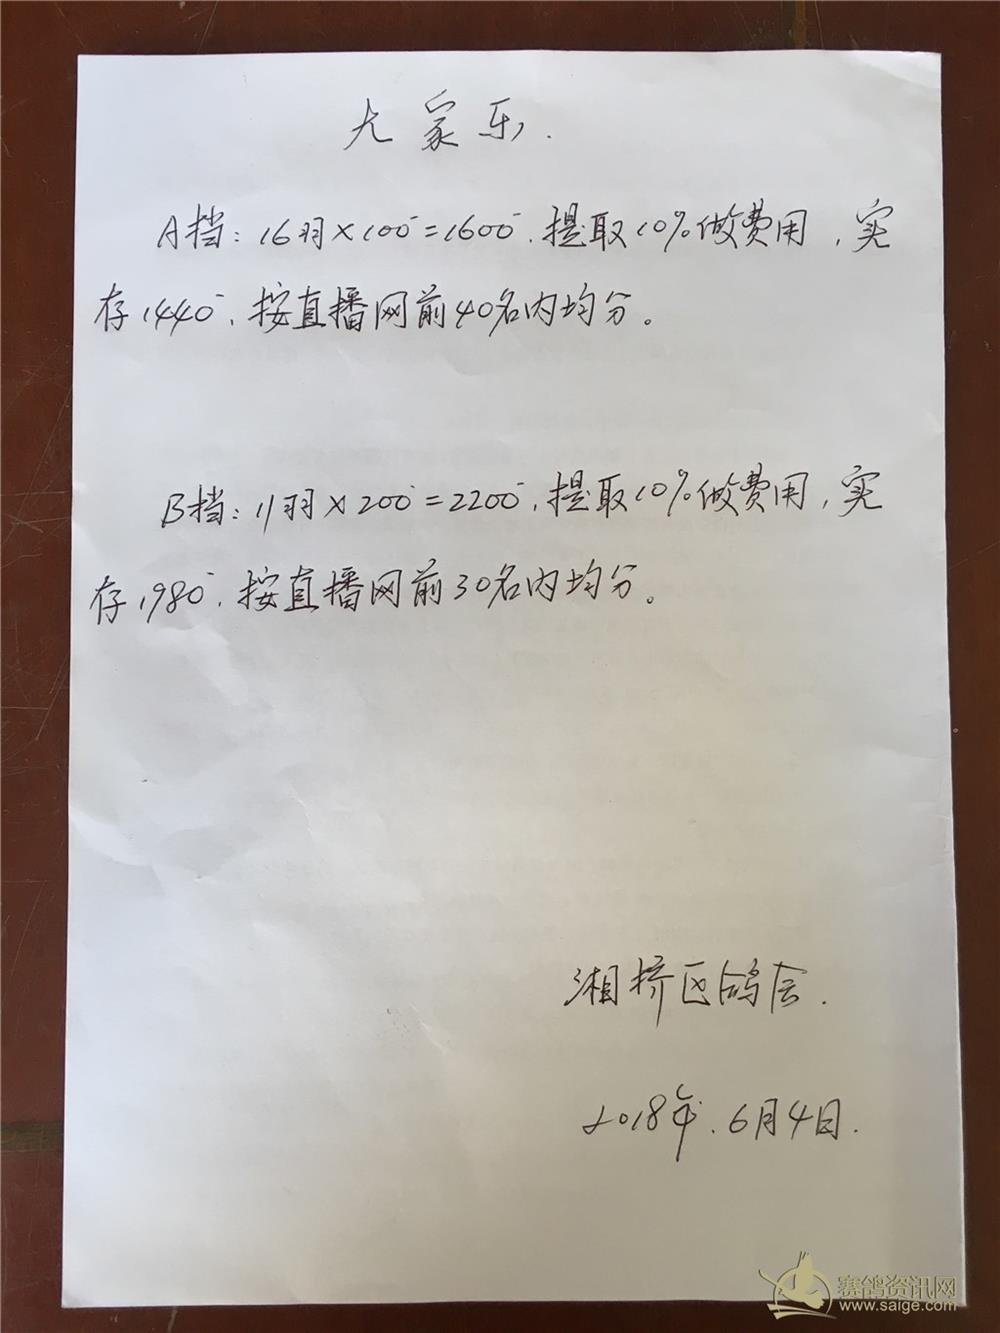 大家乐.
A挡：16羽×100-=1600-.提取10%做费用，实
存1440-.按直播网前40名内均分。
B挡：11羽×200-=2200-.提取10%做费用，实
存1980-.按直播网前30名内均分。
湘桥区鸽会.
2018年.6月4日.
赛鸽资讯网
www.saige.com